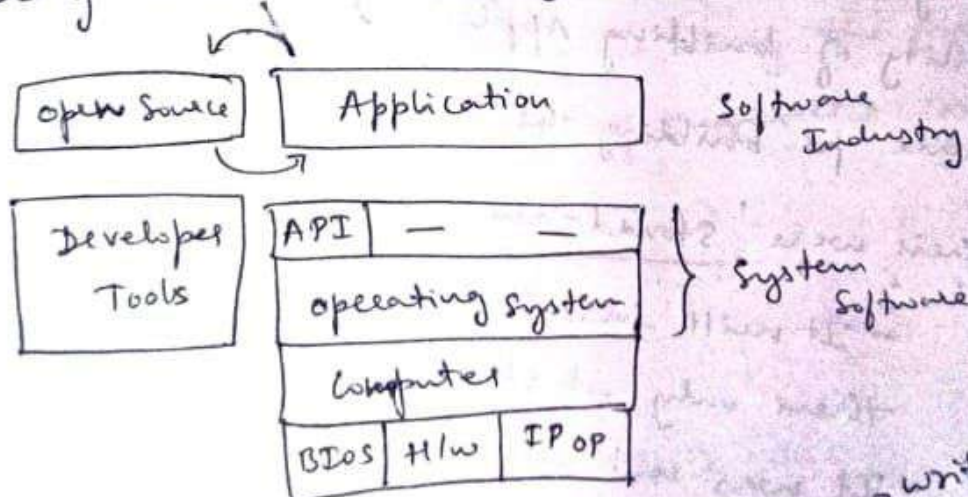 open Source
Application
Software
Industry
Developer
Tools
API — —
operating system
System
Software
Computer
BIOS H/w IP OP